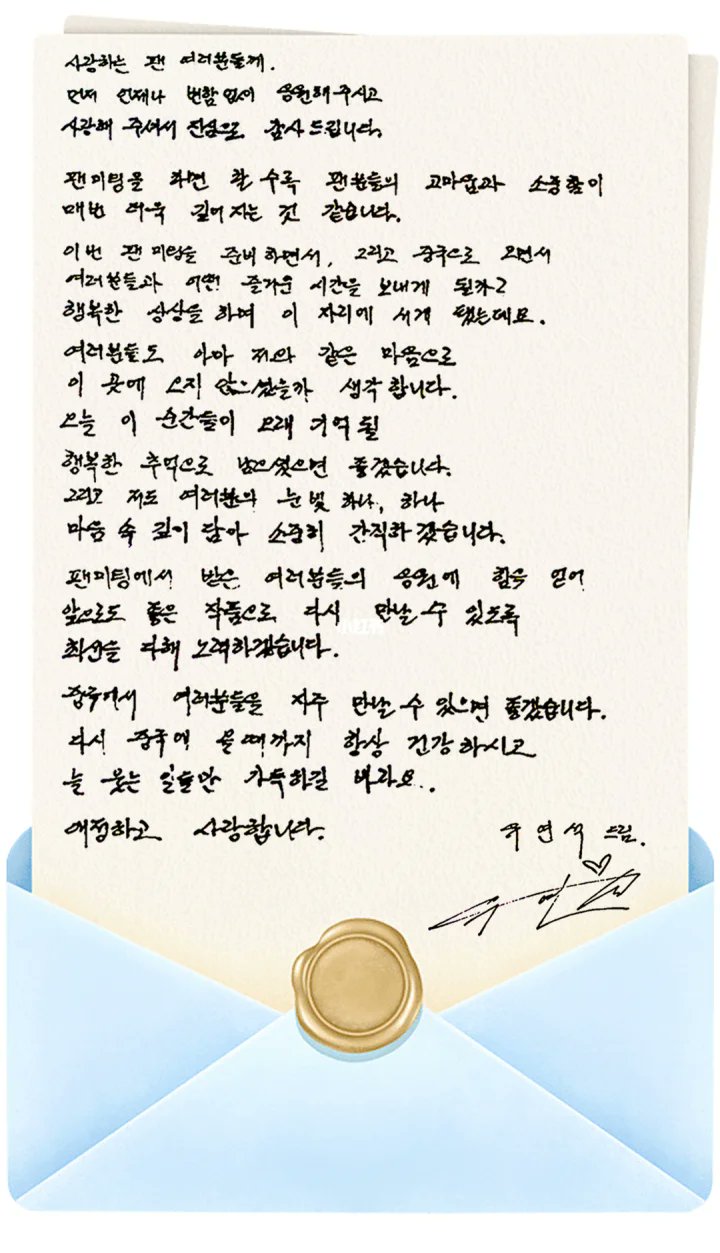 사랑하는 팬 여러분들께.
먼저 언제나 변함없이 응원해주시고
사랑해 주셔서 진심으로 감사드립니다.
팬미팅을 하면 할수록 팬분들의 고마움과 소중함이
매번 더욱 깊어지는 것 같습니다.
이번 팬미팅을 준비하면서, 그리고 중국으로 오면서
여러분들과 어떤 즐거운 시간을 보내게 될까?
행복한 상상을 하며 이 자리에 서게 됐는데요.
여러분들도 아마 저와 같은 마음으로
이 곳에 오지 않으셨을까 생각합니다.
오늘 이 순간들이 오래 기억될
행복한 추억으로 남으셨으면 좋겠습니다.
그리고 저도 여러분의 눈빛 하나, 하나
마음 속 깊이 담아 소중히 간직하겠습니다.
팬미팅에서 받은 여러분들의 응원에 힘을 얻어
앞으로도 좋은 작품으로 다시 만날 수 있도록
최선을 다해 노력하겠습니다.
중국에서 여러분들을 자주 만날 수 있으면 좋겠습니다.
다시 중국에 올 때까지 항상 건강하시고
늘 웃는 일들만 가득하길 바라요..
애정하고 사랑합니다.
우연석 드림.